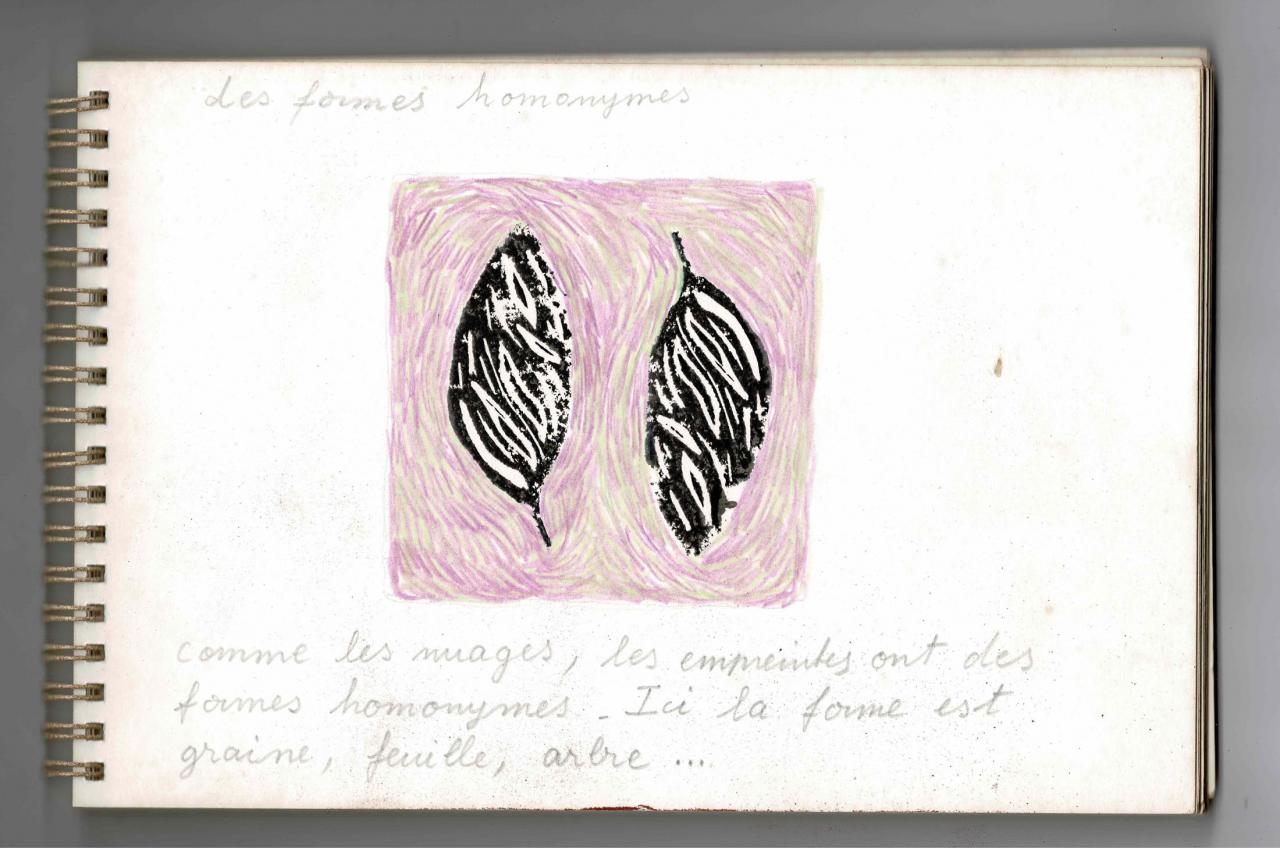 des formes homonymes
comme les nuages, les empreintes ont des
formes homonymes - Ici la forme est
graine, feuille, arbre ...